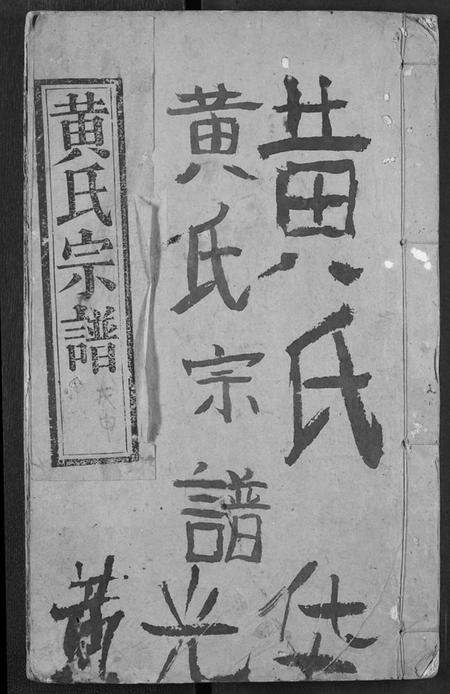 黄氏
黄氏宗譜
黄氏宗譜
仕光黄